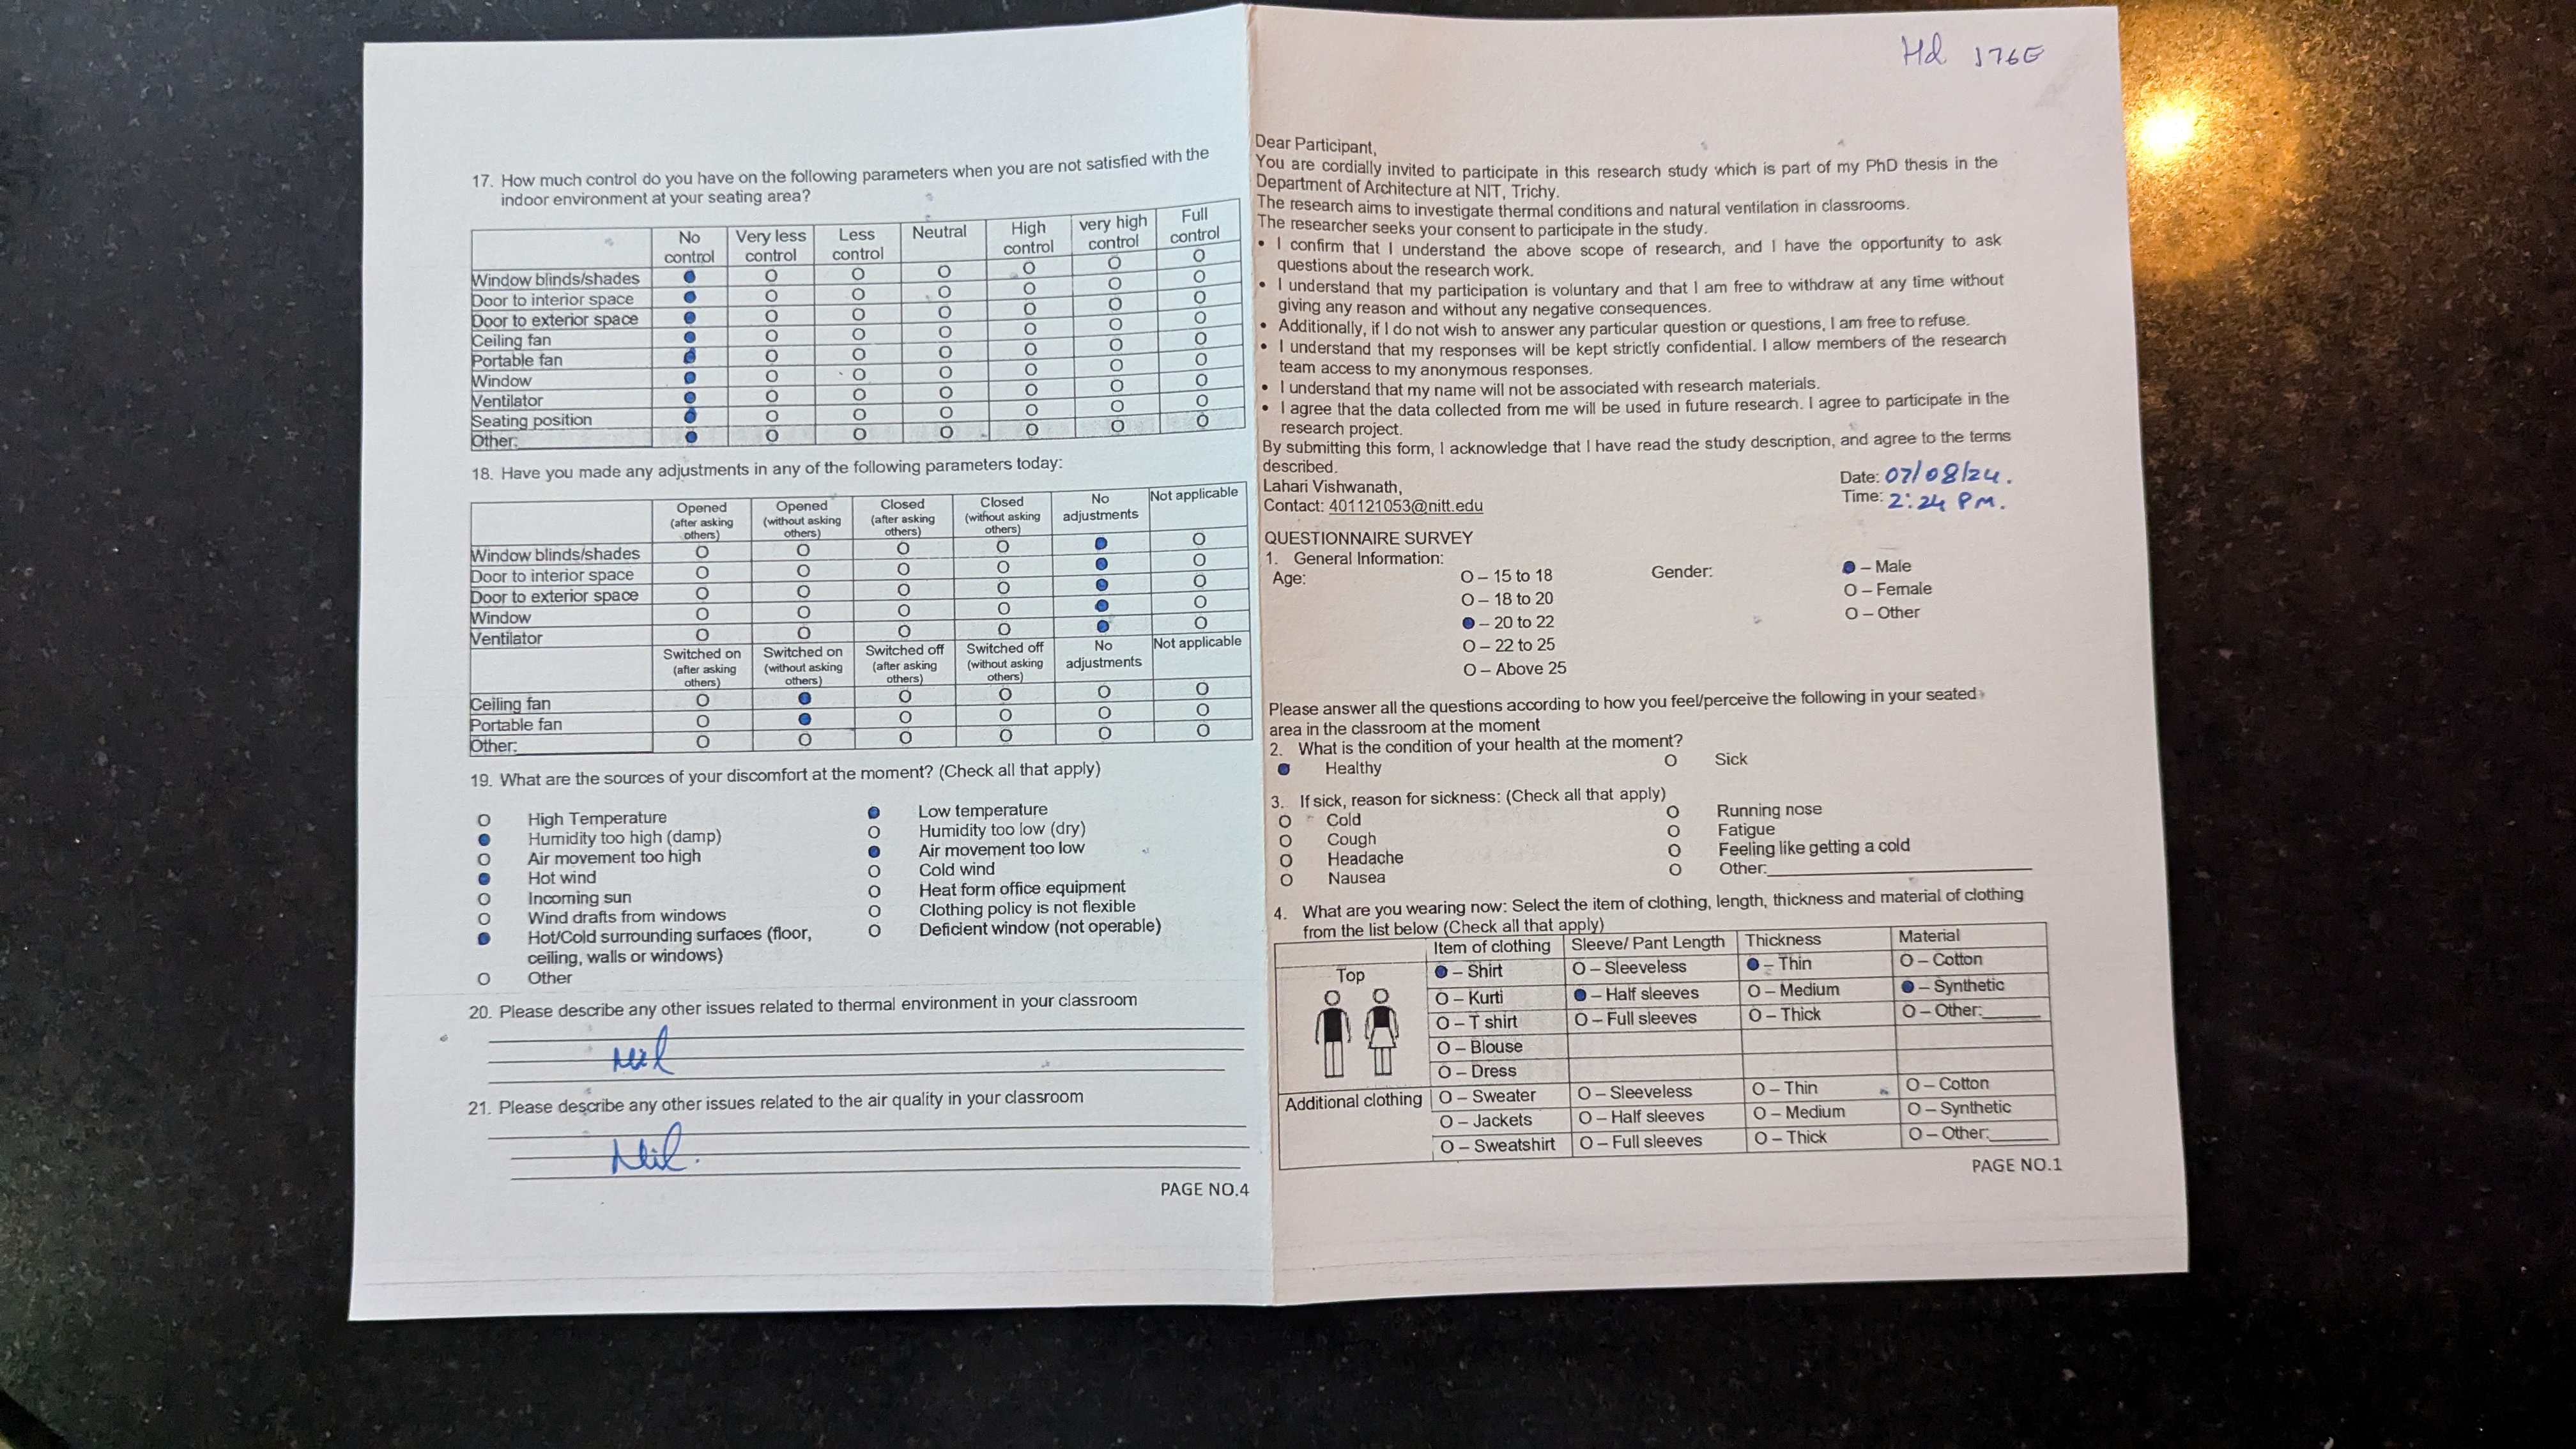 17. How much control do you have on the following parameters when you are not satisfied with the
indoor environment at your seating area?
No control Very less control Less control Neutral High control very high control Full control
Window blinds/shades ● O O O O O O
Door to interior space ● O O O O O O
Door to exterior space ● O O O O O O
Ceiling fan ● O O O O O O
Portable fan ● O O O O O O
Window ● O O O O O O
Ventilator ● O O O O O O
Seating position ● O O O O O O
Other: ● O O O O O O
18. Have you made any adjustments in any of the following parameters today:
Opened (after asking others) Opened (without asking others) Closed (after asking others) Closed (without asking others) No adjustments Not applicable
Window blinds/shades O O O O ● O
Door to interior space O O O O ● O
Door to exterior space O O O O ● O
Window O O O O ● O
Ventilator O O O O ● O
Switched on (after asking others) Switched on (without asking others) Switched off (after asking others) Switched off (without asking others) No adjustments Not applicable
Ceiling fan O ● O O O O
Portable fan O ● O O O O
Other: O O O O O O
19. What are the sources of your discomfort at the moment? (Check all that apply)
O High Temperature ● Low temperature
● Humidity too high (damp) O Humidity too low (dry)
O Air movement too high ● Air movement too low
● Hot wind O Cold wind
O Incoming sun O Heat form office equipment
O Wind drafts from windows O Clothing policy is not flexible
● Hot/Cold surrounding surfaces (floor, O Deficient window (not operable)
ceiling, walls or windows)
O Other
20. Please describe any other issues related to thermal environment in your classroom
Nil
21. Please describe any other issues related to the air quality in your classroom
Nil.
PAGE NO.4
Hd 176E
Dear Participant,
You are cordially invited to participate in this research study which is part of my PhD thesis in the
Department of Architecture at NIT, Trichy.
The research aims to investigate thermal conditions and natural ventilation in classrooms.
The researcher seeks your consent to participate in the study.
• I confirm that I understand the above scope of research, and I have the opportunity to ask
questions about the research work.
• I understand that my participation is voluntary and that I am free to withdraw at any time without
giving any reason and without any negative consequences.
• Additionally, if I do not wish to answer any particular question or questions, I am free to refuse.
• I understand that my responses will be kept strictly confidential. I allow members of the research
team access to my anonymous responses.
• I understand that my name will not be associated with research materials.
• I agree that the data collected from me will be used in future research. I agree to participate in the
research project.
By submitting this form, I acknowledge that I have read the study description, and agree to the terms
described.
Lahari Vishwanath, Date: 07/08/24.
Contact: 401121053@nitt.edu Time: 2:24 PM.
QUESTIONNAIRE SURVEY
1. General Information:
Age: O – 15 to 18 Gender: ● – Male
O – 18 to 20 O – Female
● – 20 to 22 O – Other
O – 22 to 25
O – Above 25
Please answer all the questions according to how you feel/perceive the following in your seated
area in the classroom at the moment
2. What is the condition of your health at the moment?
● Healthy O Sick
3. If sick, reason for sickness: (Check all that apply)
O Cold O Running nose
O Cough O Fatigue
O Headache O Feeling like getting a cold
O Nausea O Other:
4. What are you wearing now: Select the item of clothing, length, thickness and material of clothing
from the list below (Check all that apply)
Item of clothing Sleeve/ Pant Length Thickness Material
Top ● – Shirt O – Sleeveless ● – Thin O – Cotton
O – Kurti ● – Half sleeves O – Medium ● – Synthetic
O – T shirt O – Full sleeves O – Thick O – Other:
O – Blouse
O – Dress
Additional clothing O – Sweater O – Sleeveless O – Thin O – Cotton
O – Jackets O – Half sleeves O – Medium O – Synthetic
O – Sweatshirt O – Full sleeves O – Thick O – Other:
PAGE NO.1